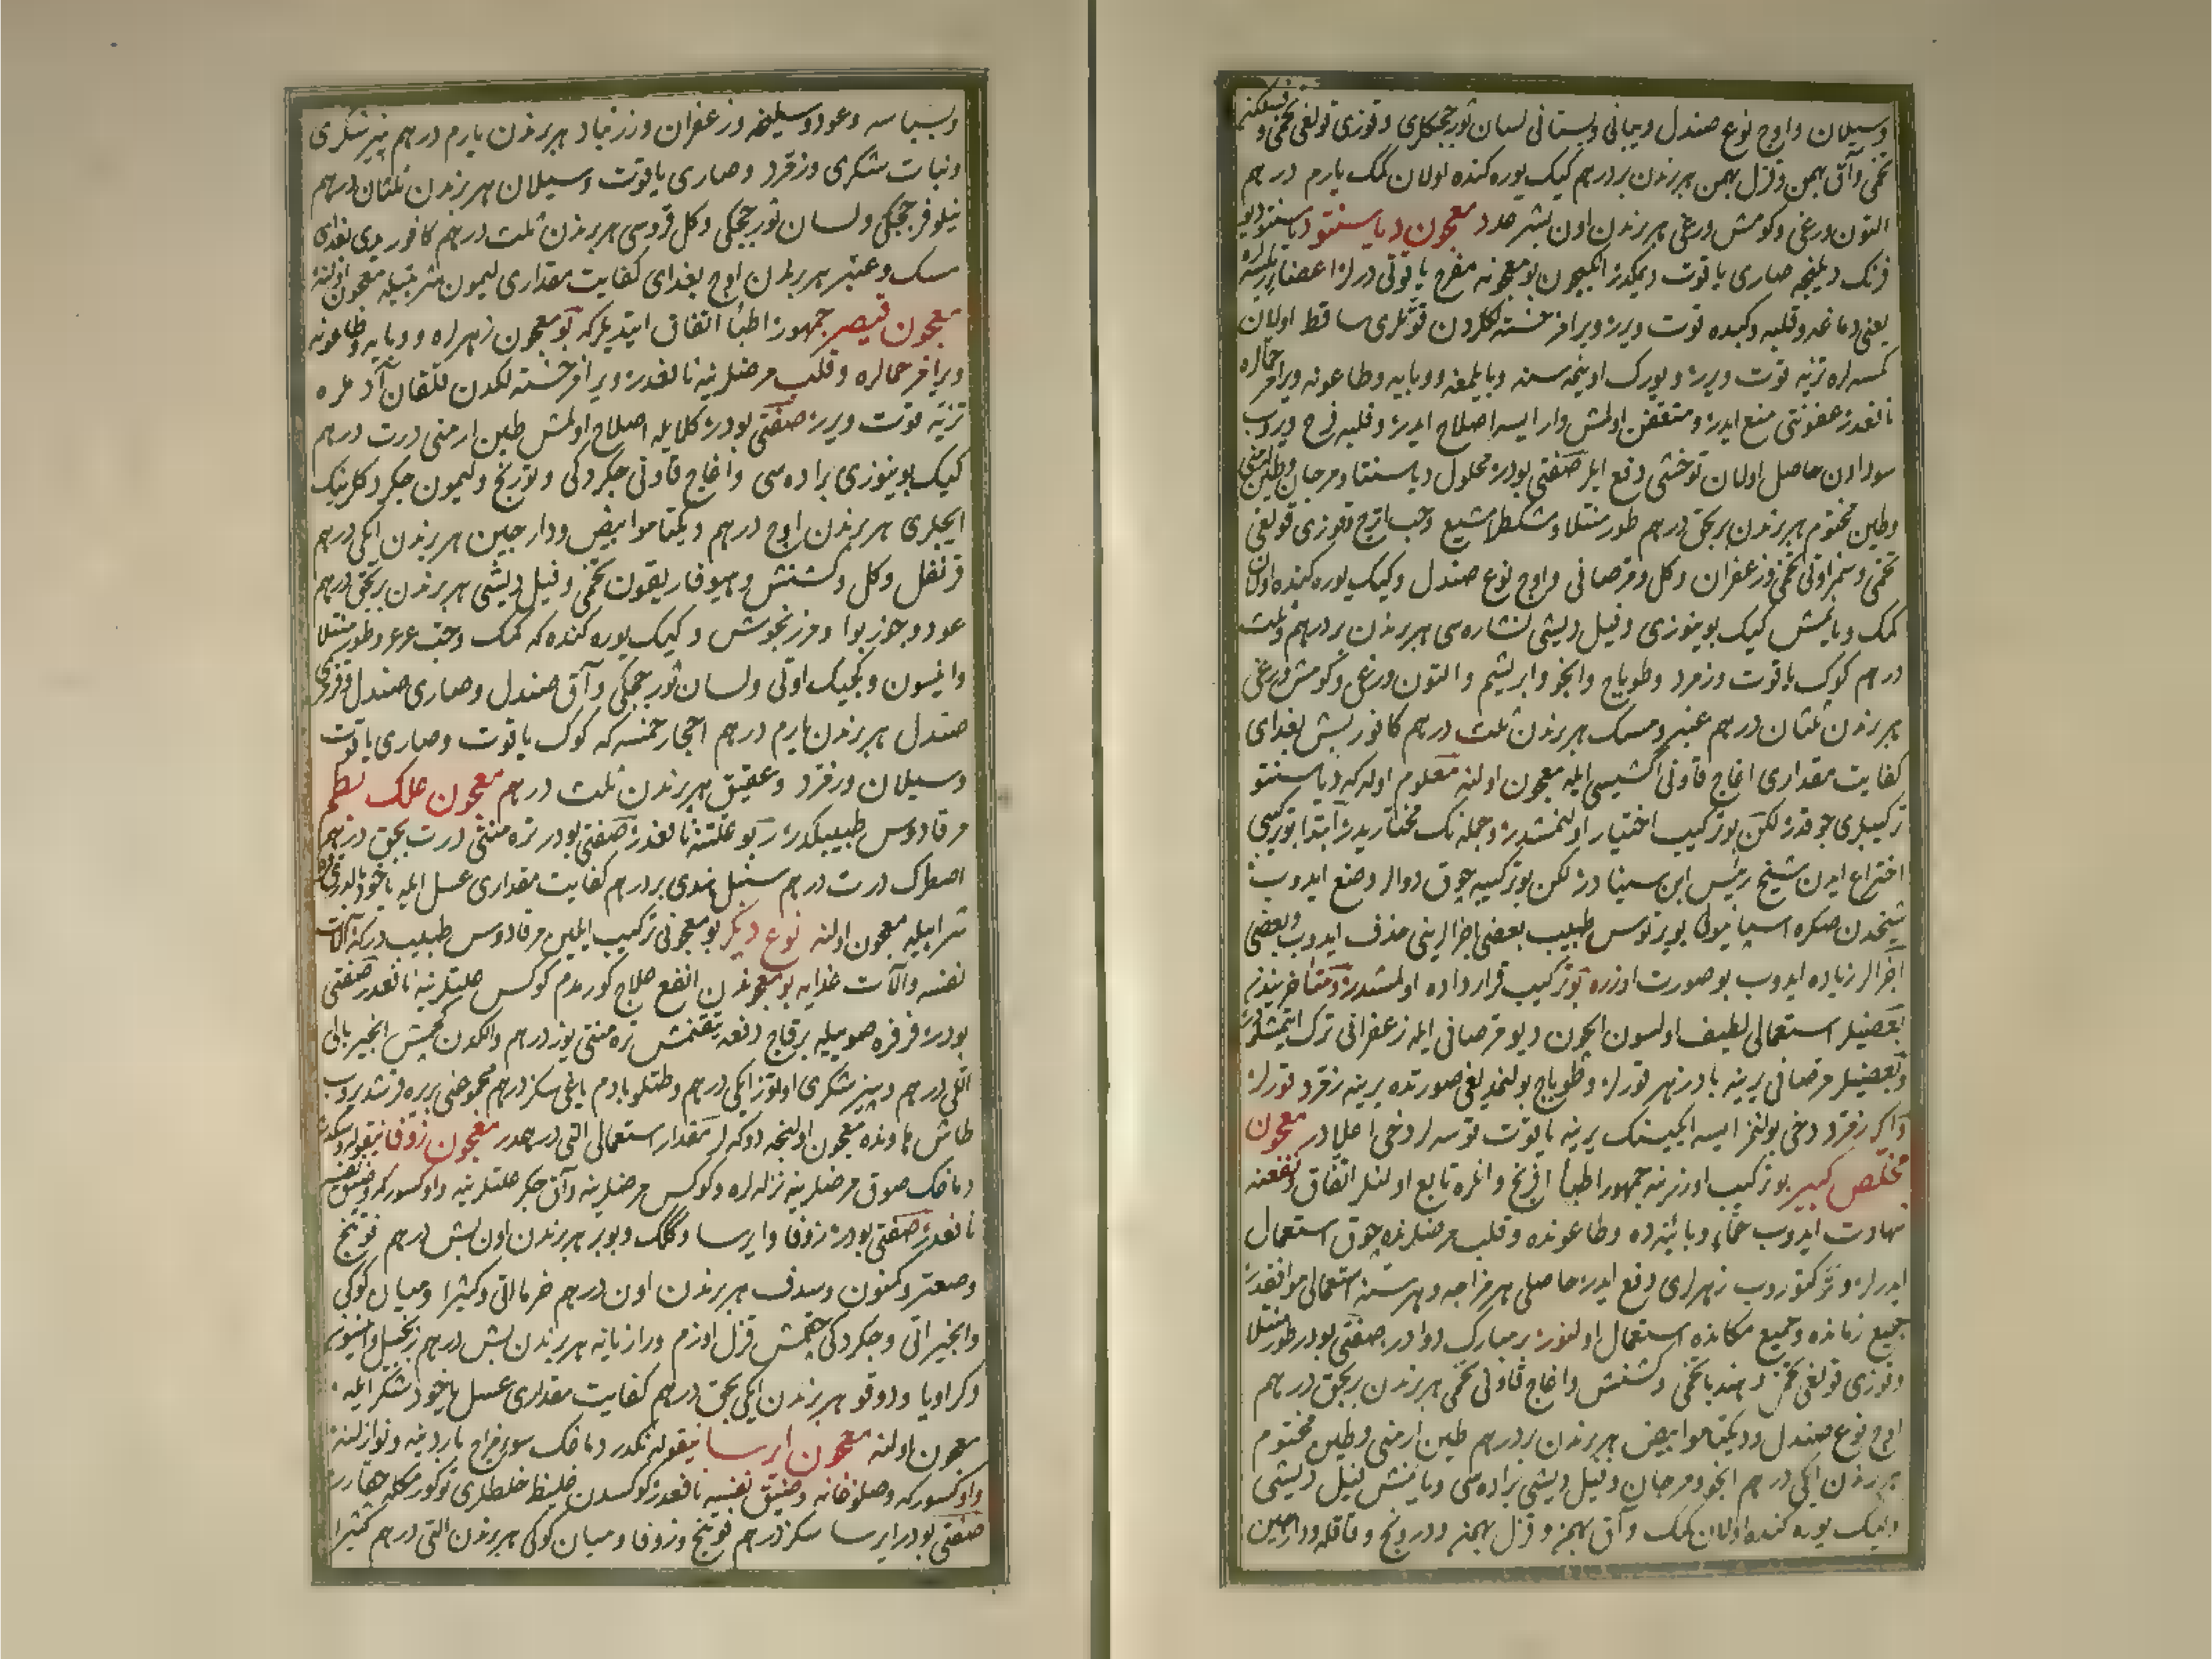 وسیلان واوچ نوع صندل ویبانی وبستانی لسان ثور چچکلری وقوزی قولغی تخمی و
تخمی وآق بهمن وقزل بهمن هر برندن بر درهم کیک یوره کنده اولان کمک یارم درهم
التون ورغی وکومش ورغی هر برندن اون بشر عدد معجون دیاسنتو دیاسنتو دیو
فرنک دیلنجه صاری یاقوت دیمکدر انکیچون بو معجونه مفرح یاقوتی درلر اعضاء رئیسه
یعنی دماغه وقلبه وکبده قوت ویرر ویرامز خسته لکلردن قوتلری ساقط اولان
کمسه لره تیز قوت ویرر ویورک اوینمه سنه وبایلمغه ووبایه وطاعونه ویرامز حمالره
نافعدر عفونتی منع ایدر ومتعفن اولمش وار ایسه اصلاح ایدر وقلبه فرح ویروب
سودادن حاصل اولان توحشی دفع ایلر صنعتی بودر محلول دیاسنتا ومرجان وطین ارمنی
وطین مختوم هر برندن بر بچق درهم طورمنتلا ومشکطرامشیع وحب اترج وقوزی قولغی
تخمی وسمز اوتی تخمی وزعفران وکل ومرصافی واوچ نوع صندل وکیک یوره کنده اولان
کمک ویانمش کیک بوینوزی وفیل دیشی نشاره سی هر برندن بر درهم وثلث
درهم کوک یاقوت وزمرد وطوپاج وانجو وابریشم والتون ورغی وکومش ورغی
هر برندن ثلثان درهم عنبر ومسک هر برندن ثلث درهم کافور بش بغدای
کفایت مقداری اغاج قاونی اکشیسی ایله معجون اولنه معلوم اوله که دیاسنتو
ترکیبلری چوقدر لکن بو ترکیب اختیار اولنمشدر وجمله نک مختاریدر ابتدا بو ترکیبی
اختراع ایدن شیخ رئیس ابن سینا در لکن بو ترکیبه چوق دوالر وضع ایدوب
شیخدن صکره اسپانیولی بوپرتوس طبیب بعضی اجزالرینی حذف ایدوب وبعضی
اجزالر زیاده ایدوب بو صورت اوزره بو ترکیب قرار داده اولمشدر ومتأخریندن
بعضیلر استعمالی لطیف اولسون ایچون دیو مرصافی ایله زعفرانی ترک ایتمشلردر
وبعضیلر مرصافی یرینه بادزهر قورلر وطوپاج بولنمدیغی صورتده یرینه زمرد قورلر
واکر زمرد دخی بولنمز ایسه ایکیسنک یرینه یاقوت قوسه لر دخی اعلادر معجون
مخلص کبیر بو ترکیب اوزرینه جمهور اطباء افرنج وانلره تابع اولنلر اتفاق ونفعنه
شهادت ایدوب حماء وبائیه ده وطاعونده وقلب مرضلرنده چوق استعمال
ایدرلر وترکتوروب زهرلری دفع ایدر حاصلی هر مزاجه وهر سنه استعمالی موافقدر
جمیع زمانده وجمیع مکانده استعمال اولنور بر مبارک دوادر صنعتی بودر طورمنتلا
وقوزی قولغی تخمی وهندبا تخمی وکشنش واغاج قاونی تخمی هر برندن بر بچق درهم
اوچ نوع صندل ودیکتاموا بیض هر برندن بر درهم طین ارمنی وطین مختوم
هر برندن ایکی درهم انجو ومرجان وفیل دیشی براده سی ویانمش فیل دیشی
وکیک یوره کنده اولان کمک وآق بهمن وقزل بهمن ودرونج وقاقله ودارچین
وبسباسه وعود وسلیخه وزعفران وزرنباد هر برندن یارم درهم پنیر شکری
ونبات شکری وزمرد وصاری یاقوت وسیلان هر برندن ثلثان درهم
نیلوفر چچکی ولسان ثور چچکی وکل قروسی هر برندن ثلث درهم کافور یدی بغدای
مسک وعنبر هر برندن اوچ بغدای کفایت مقداری لیمون شربتیله معجون اولنه
معجون قیصر جمهور اطبا اتفاق ایتدیلر که بو معجون زهرلره ووبایه وطاعونه
ویرامز حمالره وقلب مرضلرینه نافعدر ویرامز خسته لکدن قلقان آدملره
تیز قوت ویرر صنعتی بودر کلابله اصلاح اولمش طین ارمنی درت درهم
کیک بوینوزی براده سی واغاج قاونی چکردکی وتورنج ولیمون چکردکلرینک
ایچلری هر برندن اوچ درهم دیکتاموا بیض ودارچین هر برندن ایکی درهم
قرنفل وکل وکشنش وهیوفاریقون تخمی وفیل دیشی هر برندن بر بچق درهم
عود وجوز بوا ومرزنجوش وکیک یوره کنده که کمک وحب عرعر وطورمنتلا
وانیسون وبجیک اوتی ولسان ثور چچکی وآق صندل وصاری صندل وقرمزی
صندل هر برندن یارم درهم احجار خمسه که کوک یاقوت وصاری یاقوت
وسیلان وزمرد وعقیق هر برندن ثلث درهم معجون علک بطم
مرقادوس طبیبکدر ربو علتنه نافعدر صنعتی بودر تره منتی درت بچق درهم
اصطرک درت درهم سنبل هندی بر درهم کفایت مقداری عسل ایله یاخود بالدری قره
شرابیله معجون اولنه نوع دیکر بو معجونی ترکیب ایلین مرقادوس طبیب درکه آلات
نفسه وآلات غذایه بو معجوندن انفع علاج کورمدم کوکس علتلرینه نافعدر صنعتی
بودر قرفره صوییله بر قاچ دفعه یقنمش تره منتی یوز درهم والکدن کچمش انجیر بالی
اللی درهم وپنیر شکری اوتوز ایکی درهم وطتلو بادم یاغی سکز درهم مجموعنی بر یره قرشدیروب
طاش هاونده معجون اولنجه دوکه لر مقدار استعمالی التی درهمدر معجون زوفا نیقولاوسکدر
دماغک صوق مرضلرینه نزله لره وکوکس مرضلرینه وآق جکر علتلرینه واوکسورکه وضیق نفسه
نافعدر صنعتی بودر زوفا وایرسا وککک وبوبر هر برندن اون بش درهم فوتنج
وصعتر وکمون وسدف هر برندن اون درهم خرما اتی وکثیرا ومیان کوکی
وانجیر اتی وچکردکی چقمش قزل اوزم ورازیانه هر برندن بش درهم زنجبیل وانیسون
وکراویا ودوقو هر برندن ایکی بچق درهم کفایت مقداری عسل یاخود شکر ایله
معجون اولنه معجون ایرسا نیقوله نکدر دماغک سوء مزاج باردینه ونوازلنه
واوکسورکه وصلوغانه وضیق نفسه نافعدر کوکسدن غلیظ خلطلری سوکوب چقارر
صنعتی بودر ایرسا سکز درهم فوتنج وزوفا ومیان کوکی هر برندن التی درهم کثیرا